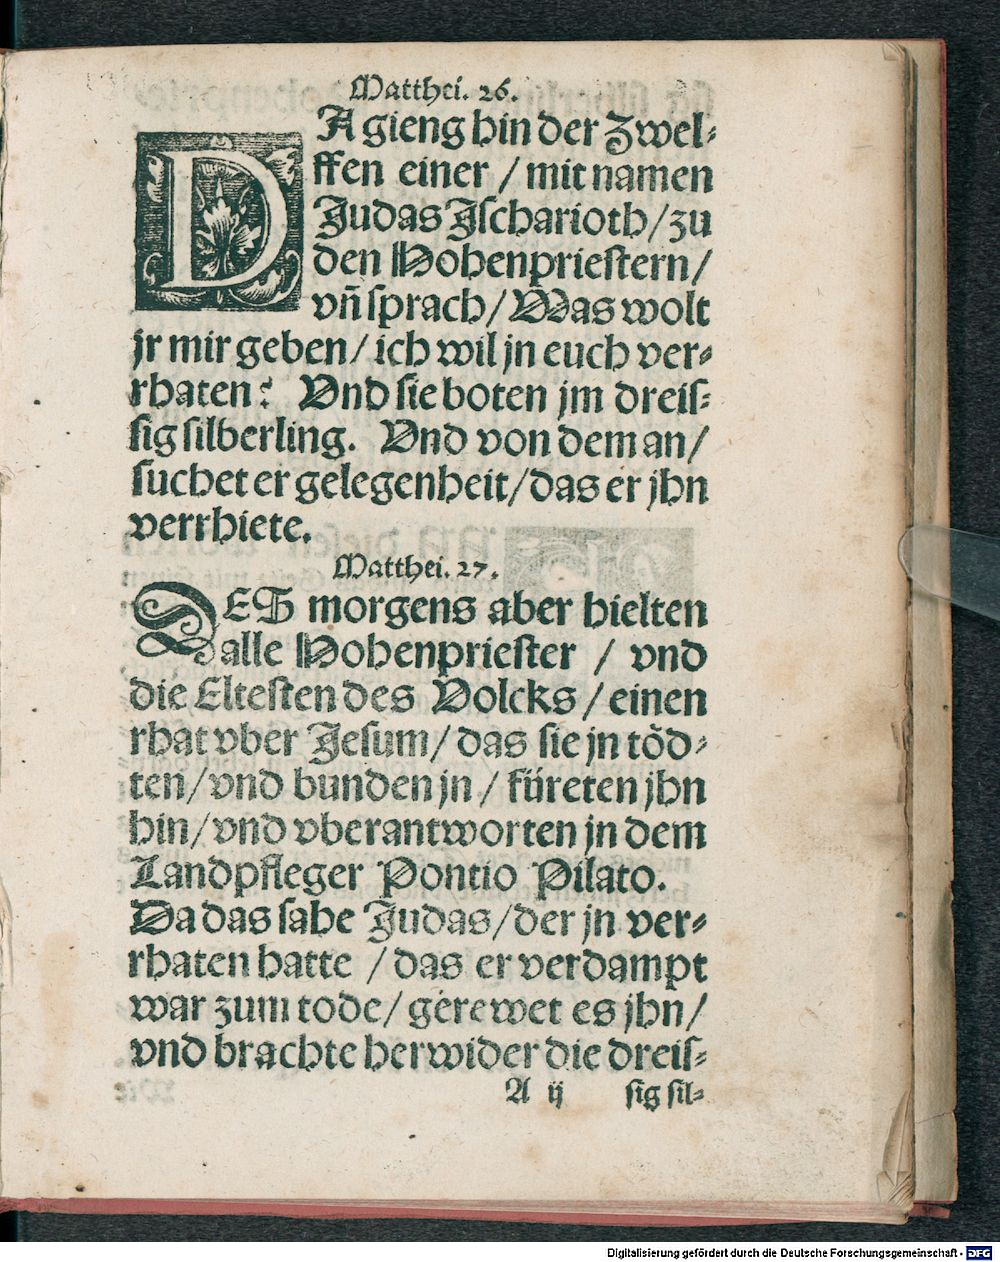 Matthei. 26.
DA gieng hin der Zwel⸗
ffen einer / mit namen
Judas Jſcharioth / zu
den Hohenprieſtern /
vñ ſprach / Was wolt
jr mir geben / ich wil jn euch ver⸗
rhaten? Vnd ſie boten jm dreiſ⸗
ſig ſilberling. Vnd von dem an /
ſuchet er gelegenheit / das er jhn
verrhiete.
Matthei. 27.
DES morgens aber hielten
alle Hohenprieſter / vnd
die Elteſten des Volcks / einen
rhat vber Jeſum / das ſie jn tŏd⸗
ten / vnd bunden jn / füreten jhn
hin / vnd vberantworten jn dem
Landpfleger Pontio Pilato.
Da das ſahe Judas / der jn ver⸗
rhaten hatte / das er verdampt
war zum tode / gerewet es jhn /
vnd brachte herwider die dreiſ⸗
A ij ſig ſil⸗
Digitalisierung gefördert durch die Deutsche Forschungsgemeinschaft - DFG